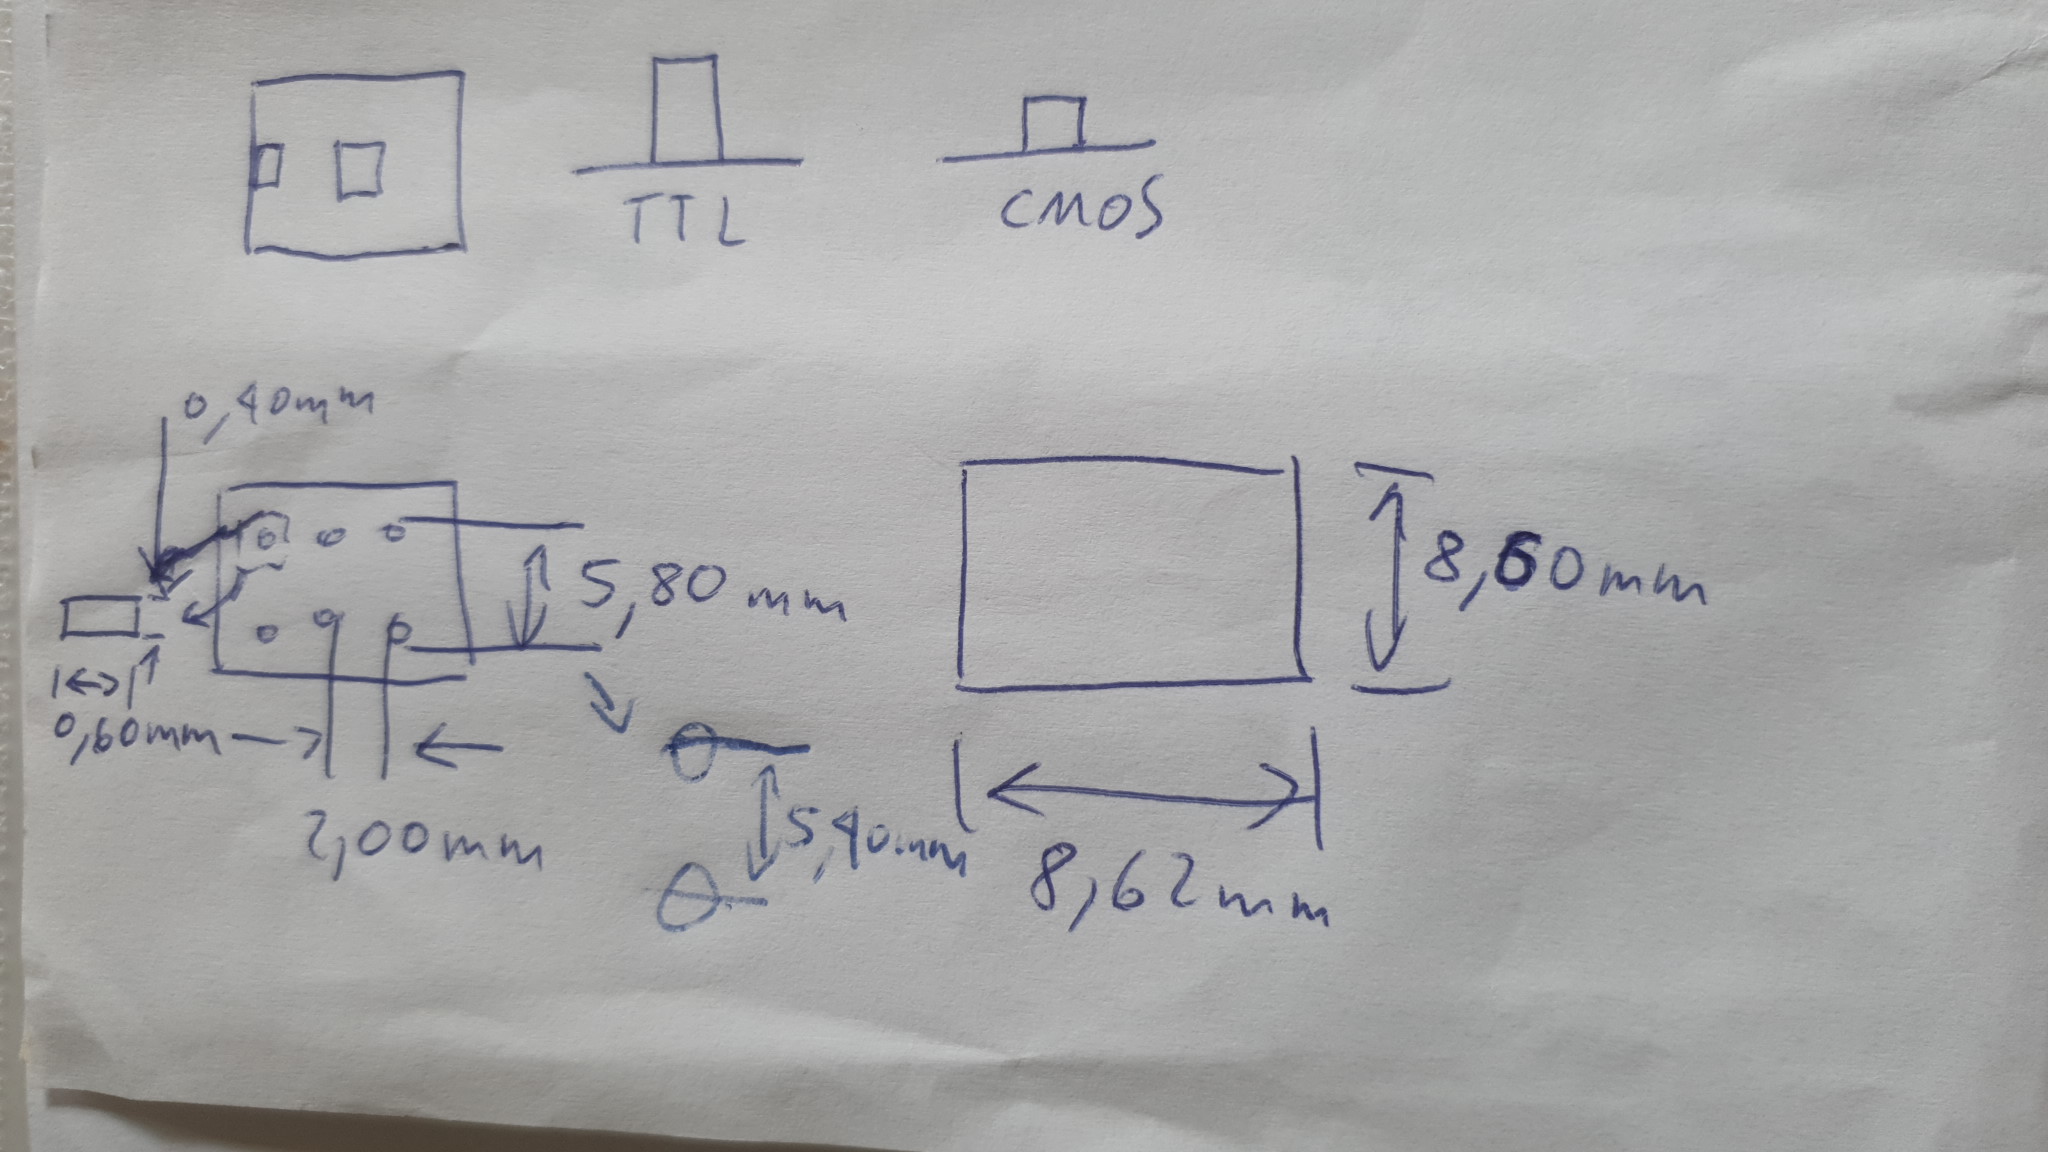 TTL
CMOS
0,40mm
5,80mm
8,60mm
0,60mm
2,00mm
5,40mm
8,62mm